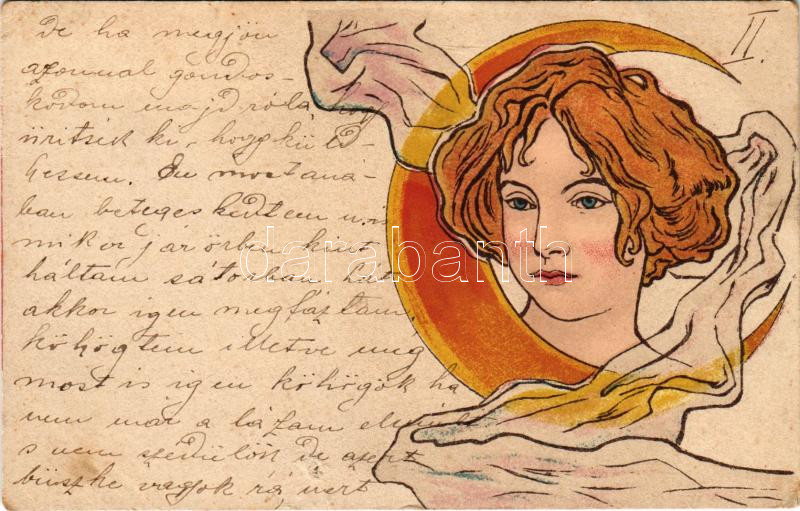 De ha megjön
azonnal gondos-
kodom majd róla, hog
ürítsék ki, hogy küld-
hessem. Én mostaná-
ban betegeskedtem u.is
mikor járőrben kint
háltam sátorban hát
akkor igen megfáztam,
köhögtem illetve még
most is igen köhögök ha
nem már a lázam elmúlt
s nem szédülök de azért
büszke vagyok rá, mert
II.
darabanth